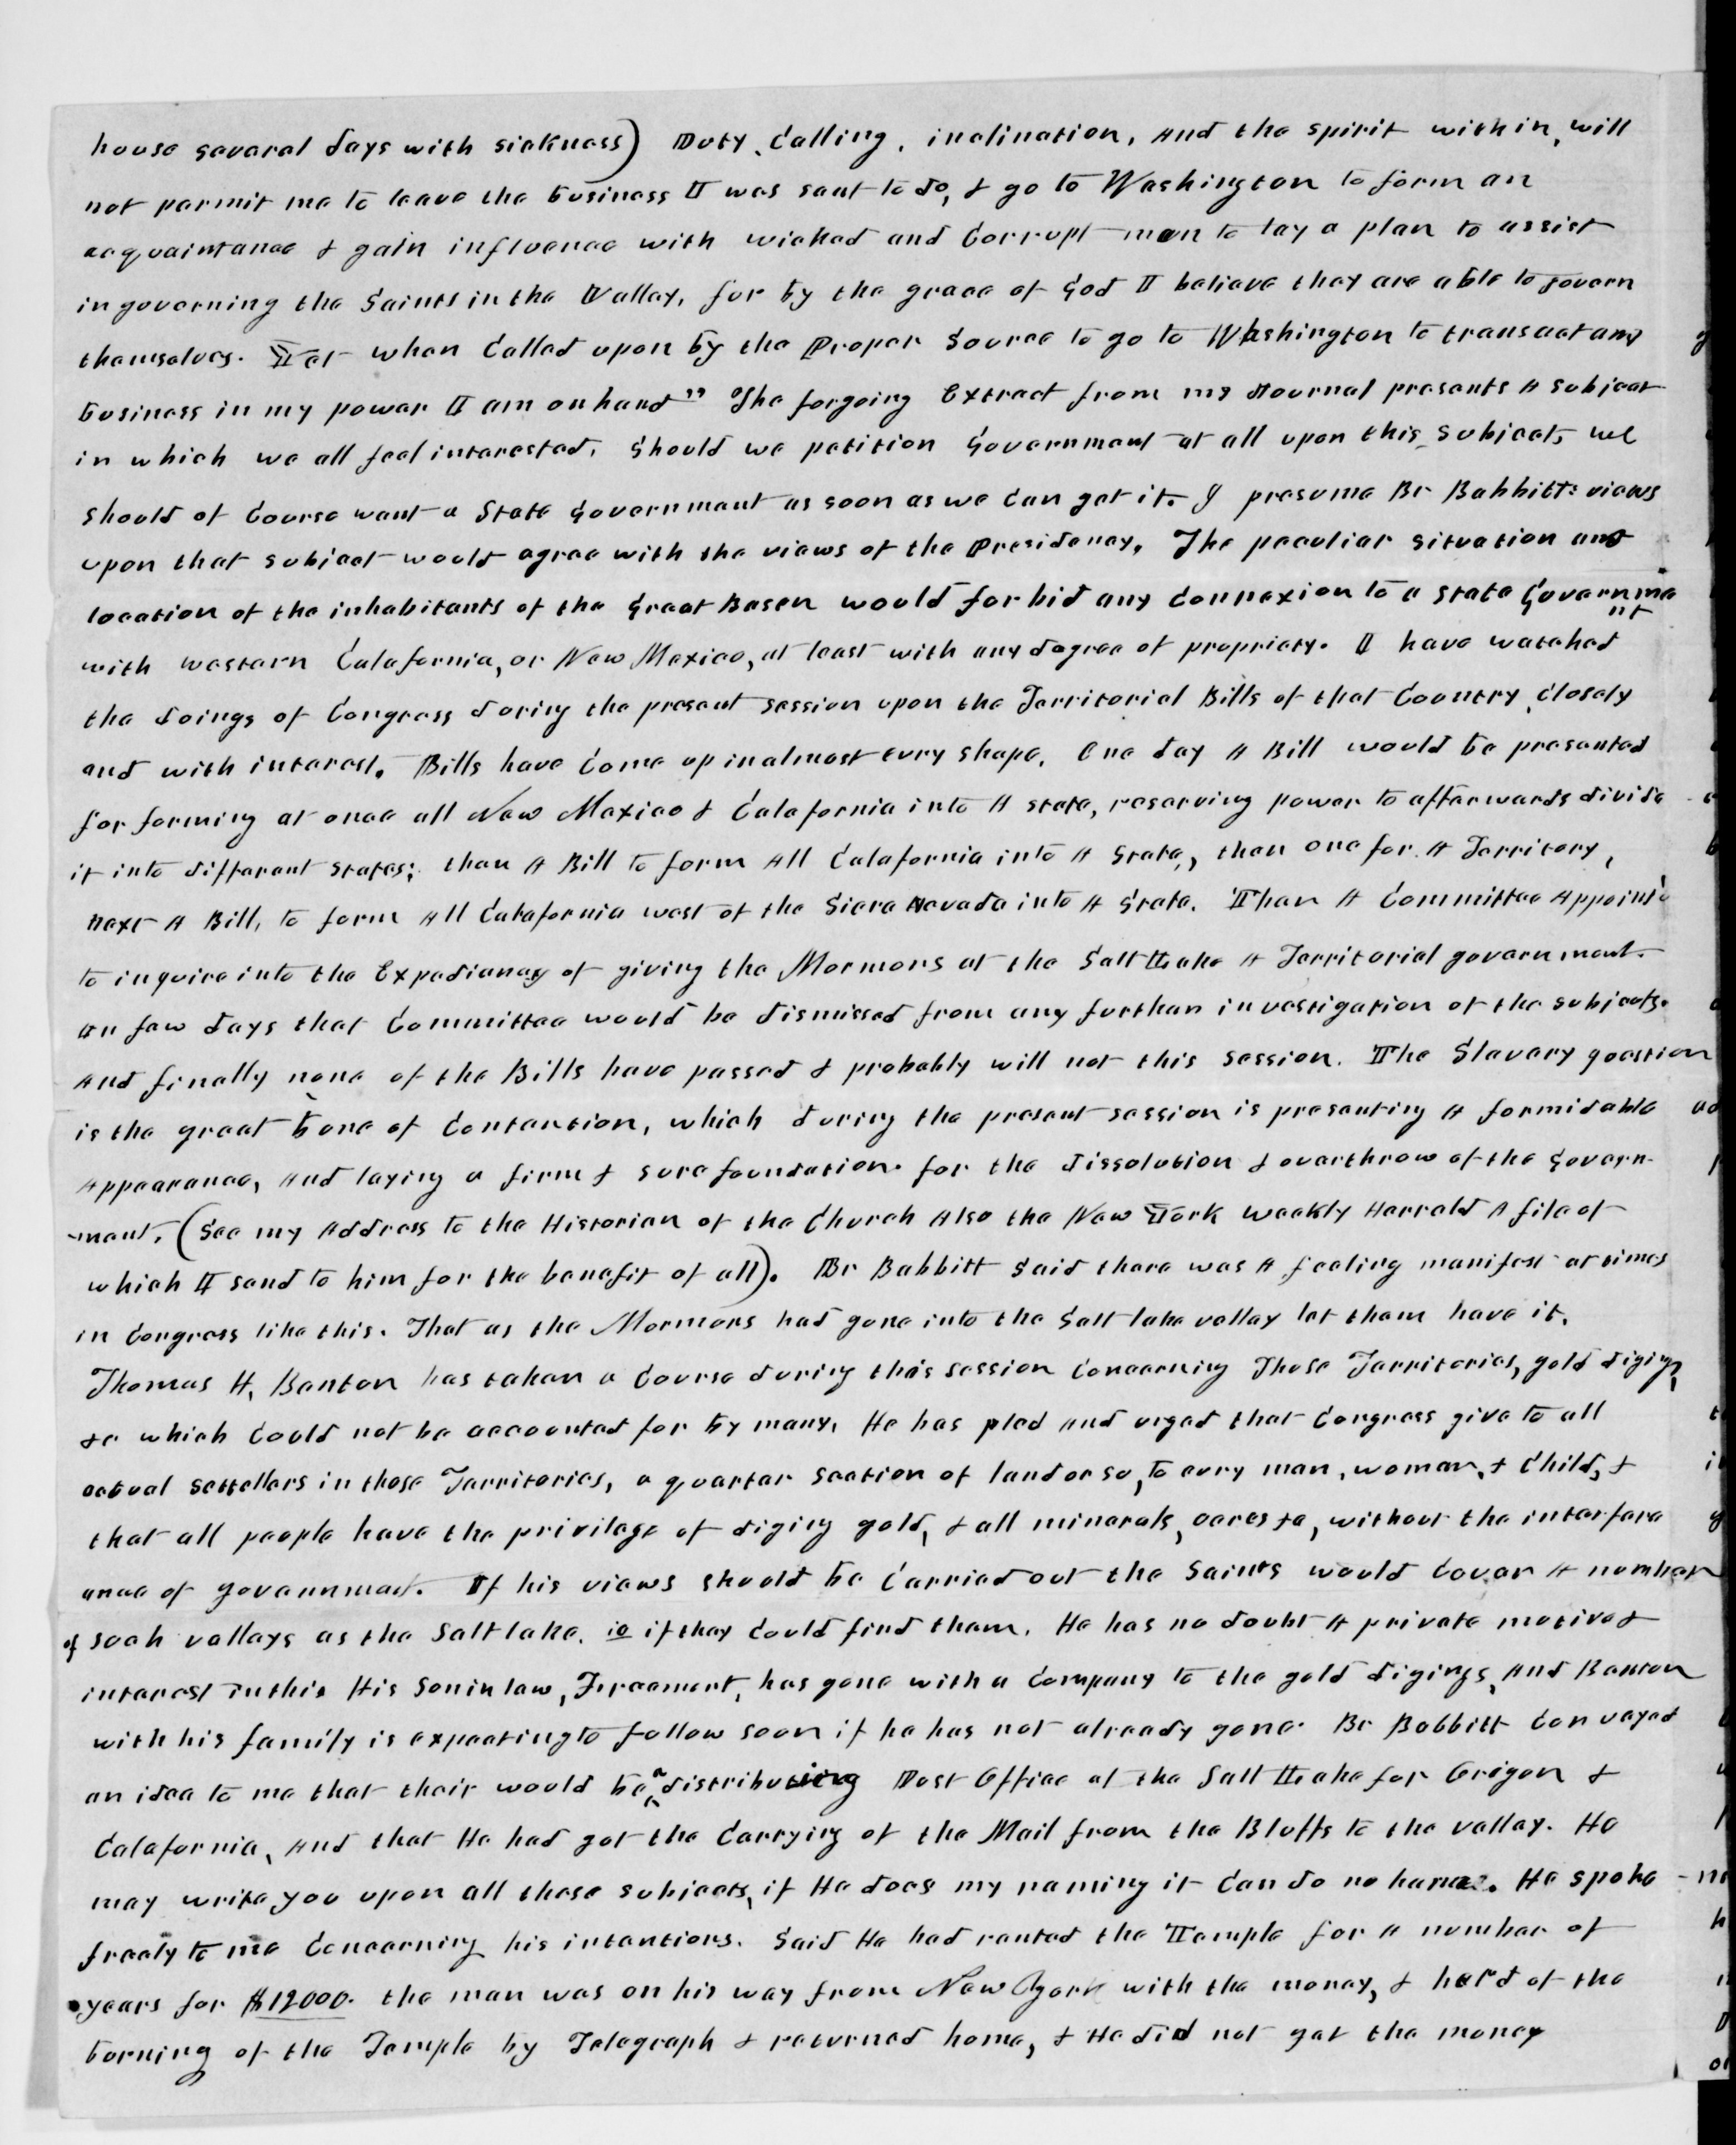 house several days with sickness) Duty, Calling, inclination, and the spirit within, will
not permit me to leave the business I was sent to do, & go to Washington to form an
acquaintance & gain influence with wicked and Corrupt men to lay a plan to assist
in governing the Saints in the Valley, for by the grace of God I believe they are able to govern
themselves. Yet when Called upon by the Proper Source to go to Washington to transact any
business in my power I am on hand" The forgoing Extract from my Journal presents A subject
in which we all feel interested. Should we petition Government at all upon this subject, we
should of Course want a State Government as soon as we Can get it. I presume Br Babbitts views
upon that subject would agree with the views of the Presidency. The peculiar situation and
location of the inhabitants of the Great Basen would forbid any Connexion to a State Governme
nt
with western Calafornia, or New Mexico, at least with any degree of propriety. I have watched
the doings of Congress during the present session upon the Territorial Bills of that Country, Closely
and with interest. Bills have Come up in almost evry shape. One day A Bill would be presented
for forming at once all New Mexico & Calafornia into A state, reserving power to afterwards divide
it into different states; then A Bill to form All Calafornia into A State, then one for A Territory,
next A Bill, to form All Calafornia west of the Siera Nevada into A State. Then A Committee Appoint'd
to inquire into the Expediancy of giving the Mormons at the Salt Lake A Territorial government.
in few days that Committee would be dismissed from any further investigation of the subjects.
And finally none of the Bills have passed & probably will not this session. The Slavery question
is the great bone of Contention, which during the present session is presenting A formidable
Appearance, And laying a firm & sure foundation for the dissolution & overthrow of the Govern-
-ment. (See my Address to the Historian of the Church Also the New York weekly Herrald A file of
which I send to him for the benefit of all). Br Babbitt said there was A feeling manifest at times
in Congress like this. That as the Mormons had gone into the Salt lake valley let them have it.
Thomas H. Benton has taken a Course during this session Concerning Those Territories, gold diging,
&c which Could not be accounted for by many. He has pled and urged that Congress give to all
actual settellers in those Territories, a quarter section of land or so, to evry man, woman, & Child, &
that all people have the privilege of diging gold, & all minerals, oares &c, without the interfere
ence of government. If his views should be Carried out the Saints would Cover A number
of such valleys as the Salt lake. ie if they Could find them. He has no doubt A private motive &
interest in this His Son in law, Freemont, has gone with a Company to the gold digings, And Benton
with his family is expecting to follow soon if he has not already gone. Br Babbitt Conveyed
an idea to me that their would be a distributing Post Office at the Salt Lake for Origon &
Calafornia, And that He had got the Carrying of the Mail from the Bluffs to the valley. He
may write you upon all these subjects, if He does my naming it Can do no harm. He spoke
freely to me Concerning his intentions. Said He had rented the Temple for A number of
years for $12000. the man was on his way from New York with the money, & herd of the
borning of the Temple by Telegraph & returned home, & He did not get the money